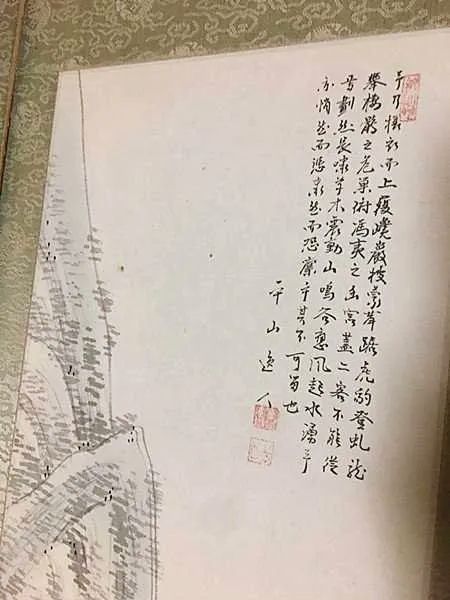 予乃攝衣而上履巉巖披蒙茸踞虎豹登虬龍
攀棲鶻之危巢俯馮夷之幽宮蓋二客不能從
焉劃然長嘯草木震動山鳴谷應風起水湧予
亦悄然而悲肅然而恐凜乎其不可留也
平山逸人